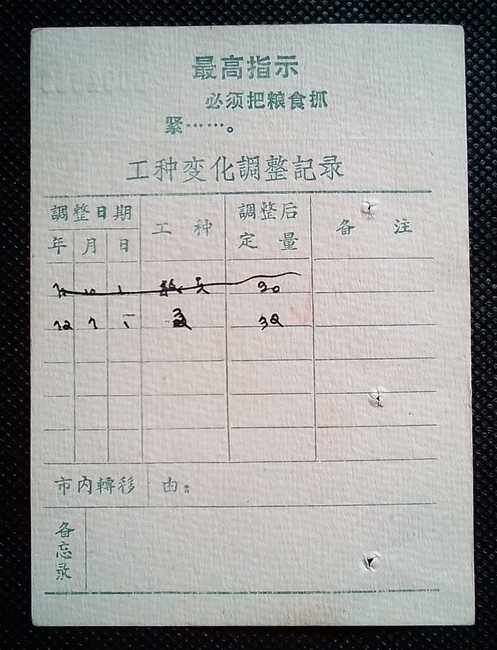 最高指示
必须把粮食抓
紧……。
工种变化調整記录
調整日期 工种 調整后定量 备注
年 月 日
30
72 7 32
市内轉移 由：
备忘录